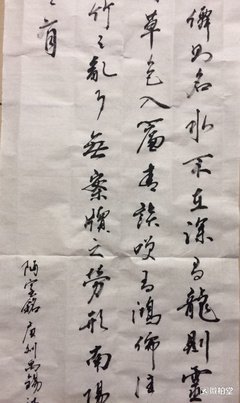 僊則名水不在深有龍則靈
草色入簾青談笑有鴻儒往
竹之亂耳無案牘之勞形南陽
之有
陋室銘 唐劉禹錫
微拍堂